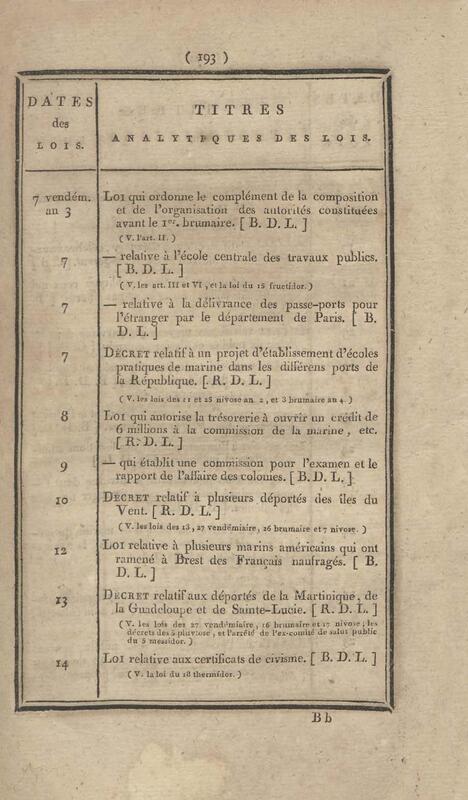 ( 193 )
DATES
des
LOIS.
TITRES
ANALYTIQUES DES LOIS.
7 vendém.
an 3
LOI qui ordonne le complément de la composition
et de l'organisation des autorités constituées
avant le 1er. brumaire. [ B. D. L. ]
( V. l'art. II. )
7
— relative à l'école centrale des travaux publics.
[ B. D. L. ]
( V. les art. III et VI , et la loi du 15 fructidor. )
7
— relative à la délivrance des passe-ports pour
l'étranger par le département de Paris. [ B.
D. L. ]
7
DÉCRET relatif à un projet d'établissement d'écoles
pratiques de marine dans les différens ports de
la République. [ R. D. L. ]
( V. les lois des 11 et 25 nivose an 2 , et 3 brumaire an 4. )
8
LOI qui autorise la trésorerie à ouvrir un crédit de
6 millions à la commission de la marine , etc.
[ R. D. L. ]
9
— qui établit une commission pour l'examen et le
rapport de l'affaire des colonies. [ B. D. L. ]
10
DÉCRET relatif à plusieurs déportés des îles du
Vent. [ R. D. L. ]
( V. les lois des 13, 27 vendémiaire, 26 brumaire et 7 nivose. )
12
LOI relative à plusieurs marins américains qui ont
ramené à Brest des Français naufragés. [ B.
D. L. ]
13
DÉCRET relatif aux déportés de la Martinique, de
la Guadeloupe et de Sainte-Lucie. [ R. D. L. ]
( V. les lois des 27 vendémiaire, 16 brumaire et 17 nivose ; les
décrets des 5 pluviose , et l'arrêté de l'ex-comité de salut public
du 5 messidor. )
14
LOI relative aux certificats de civisme. [ B. D. L. ]
( V. la loi du 18 thermidor. )
B b